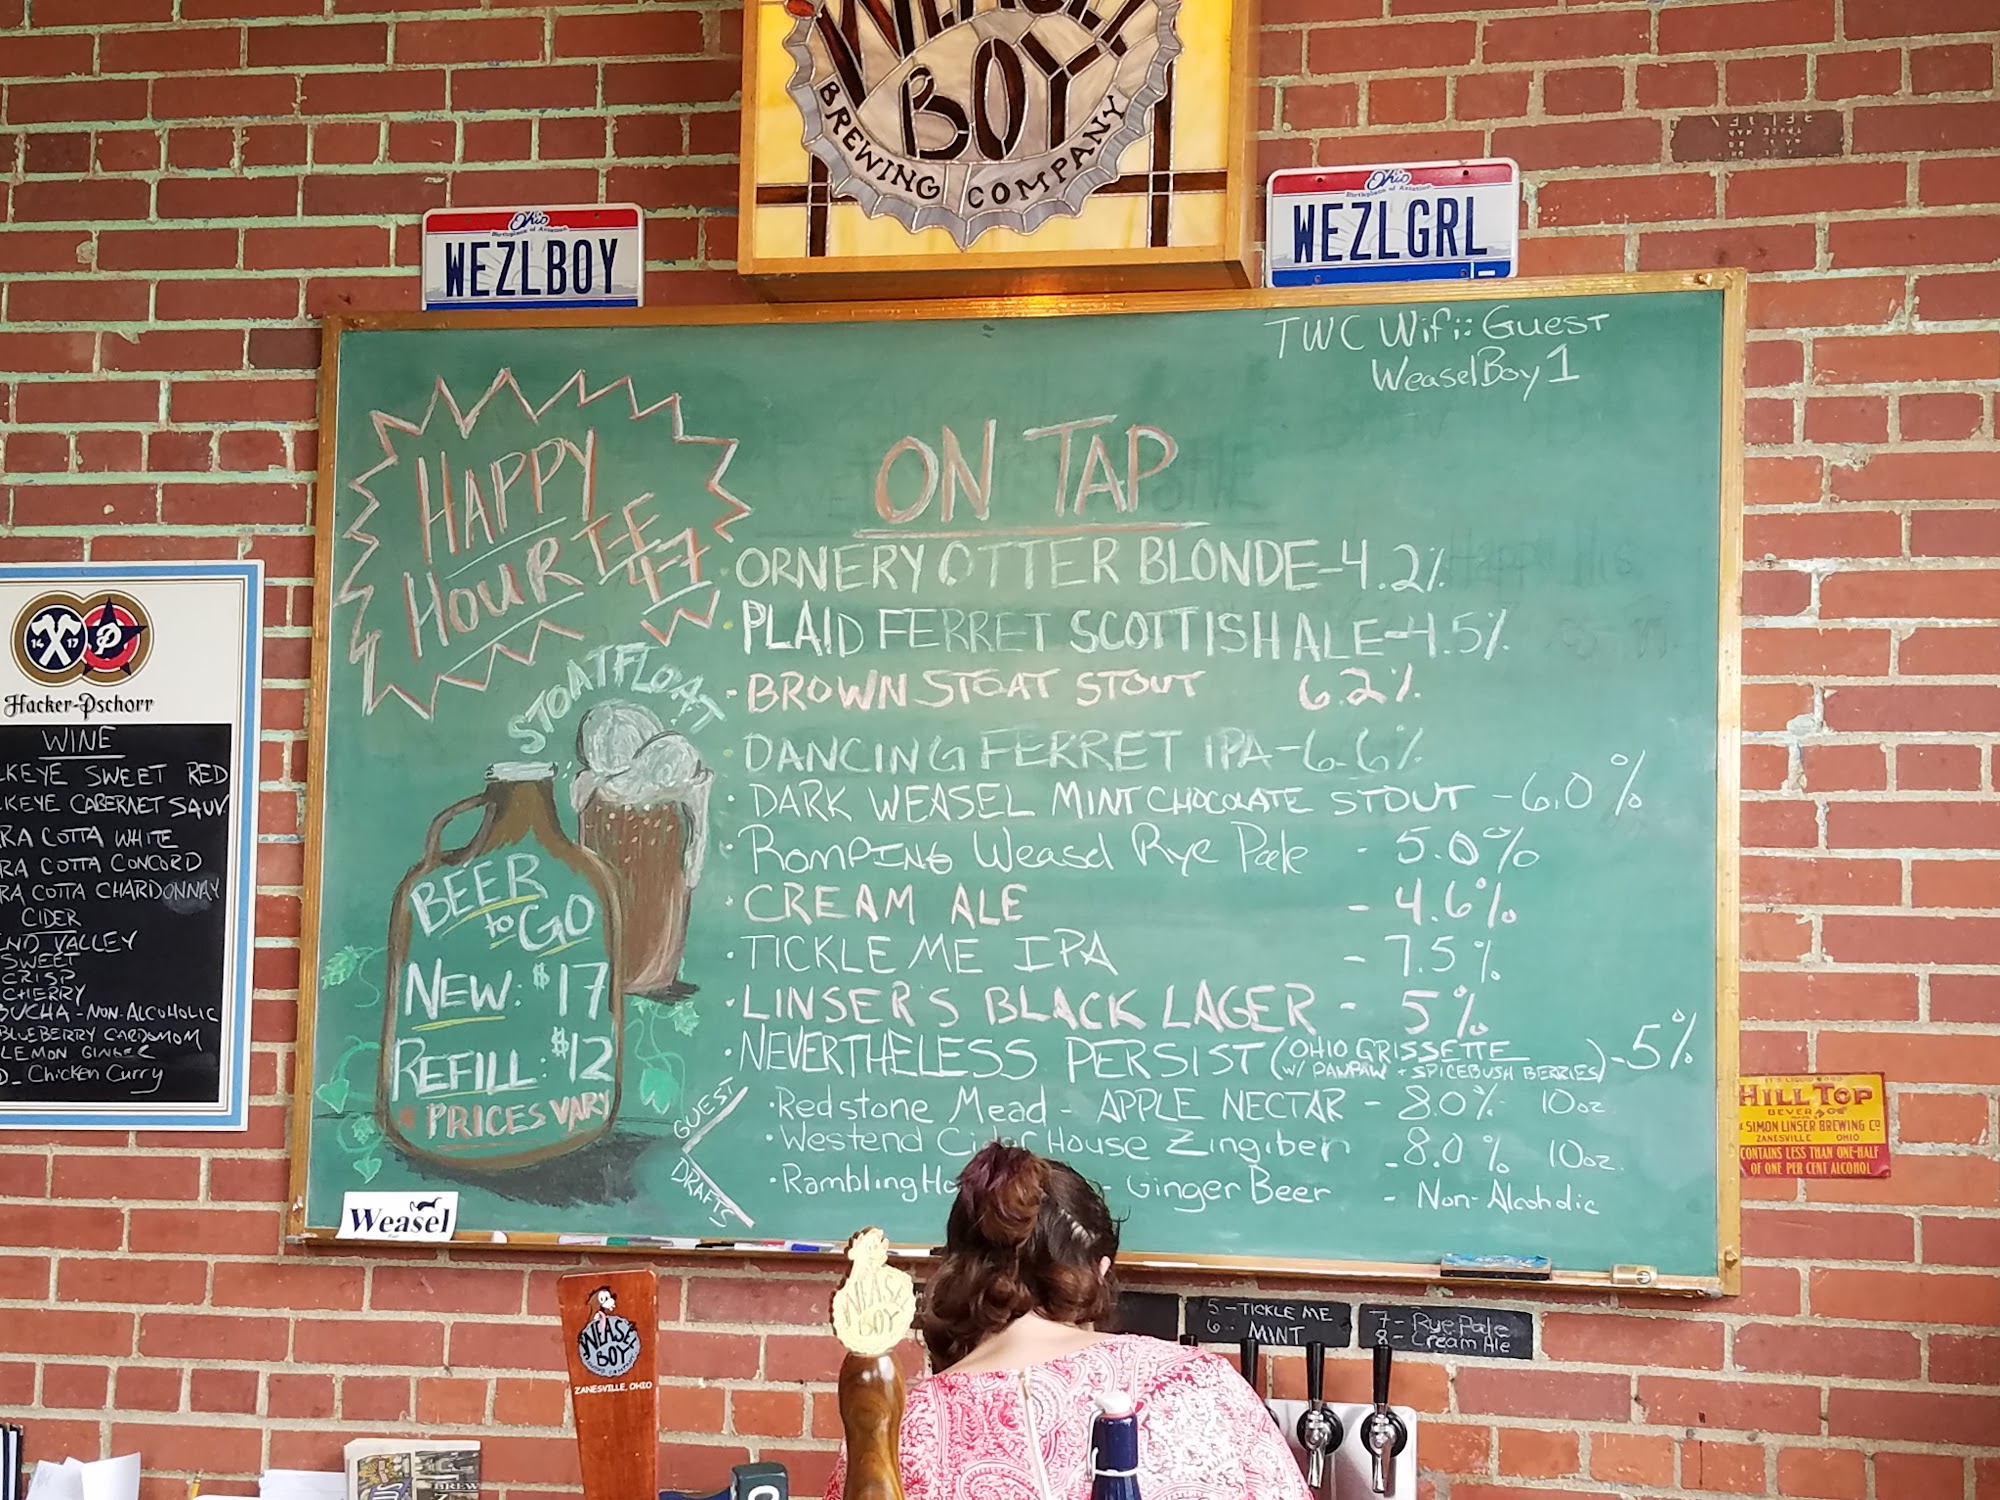 BOY
BREWING COMPANY
Ohio
Birthplace of Aviation
WEZLBOY
Ohio
Birthplace of Aviation
WEZLGRL
TWC Wifi: Guest
WeaselBoy1
HAPPY
HOUR
ON TAP
ORNERY OTTER BLONDE-4.2%
PLAID FERRET SCOTTISH ALE-4.5%
BROWN STOAT STOUT 6.2%
DANCING FERRET IPA-6.6%
DARK WEASEL MINT CHOCOLATE STOUT -6.0%
Romping Weasel Rye Pale - 5.0%
CREAM ALE - 4.6%
TICKLE ME IPA - 7.5%
LINSER'S BLACK LAGER - 5%
NEVERTHELESS PERSIST (OHIO GRISSETTE
W/ PAWPAW + SPICEBUSH BERRIES) -5%
GUEST
DRAFTS
Redstone Mead - APPLE NECTAR - 8.0% 10oz
Westend Cider House Zingiber - 8.0% 10oz.
Rambling - Ginger Beer - Non-Alcoholic
STOAT FLOAT
BEER
to GO
NEW: $17
REFILL: $12
* PRICES VARY
Weasel
14 17
Hacker-Pschorr
WINE
SWEET RED
CABERNET SAUV
COTTA WHITE
COTTA CONCORD
COTTA CHARDONNAY
CIDER
VALLEY
SWEET
CRISP
CHERRY
NON-ALCOHOLIC
BLUEBERRY CARDAMOM
LEMON GINGER
Chicken Curry
HILL TOP
BEVERAGE
SIMON LINSER BREWING CO
ZANESVILLE OHIO
CONTAINS LESS THAN ONE-HALF
OF ONE PER CENT ALCOHOL
WEASEL
BOY
ZANESVILLE, OHIO
WEASEL
BOY
5-TICKLE ME
6- MINT
7- Rye Pale
8- Cream Ale
BREW